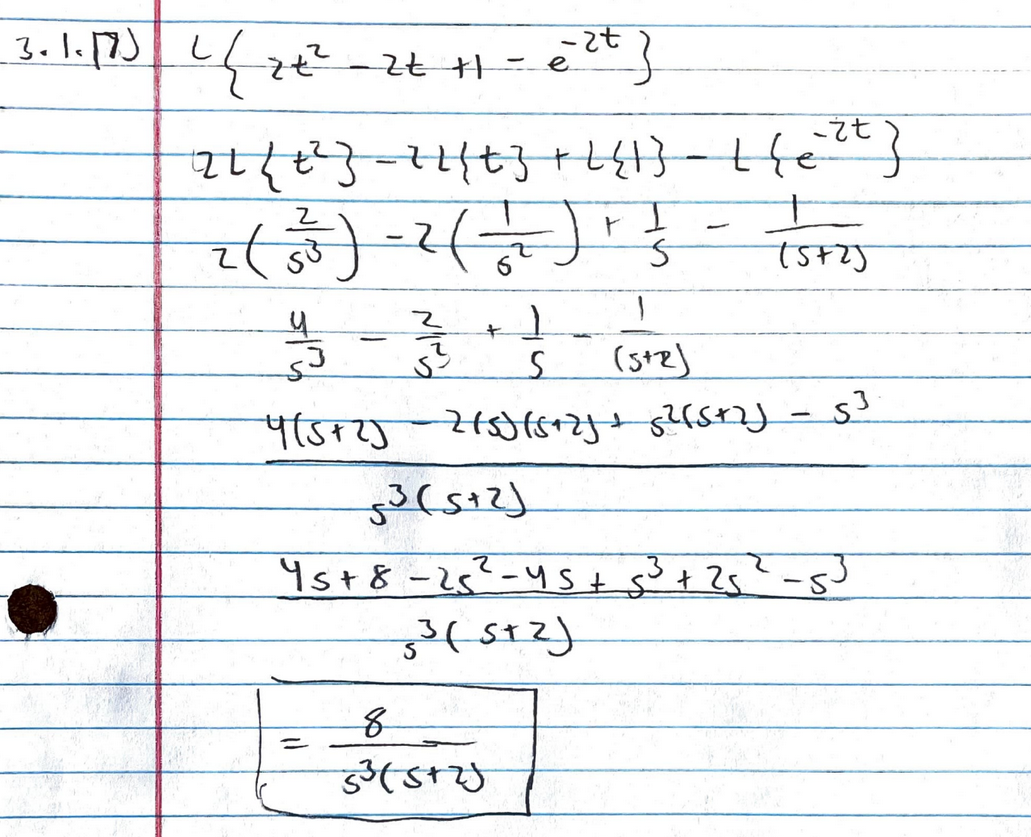 3.1.17) L{ 2t² - 2t + 1 - e^{-2t} }
2L{t²} - 2L{t} + L{1} - L{e^{-2t}}
2(2/s³) - 2(1/s²) + 1/s - 1/(s+2)
4/s³ - 2/s² + 1/s - 1/(s+2)
4(s+2) - 2(s)(s+2) + s²(s+2) - s³
s³(s+2)
4s + 8 - 2s² - 4s + s³ + 2s² - s³
s³(s+2)
= 8/s³(s+2)